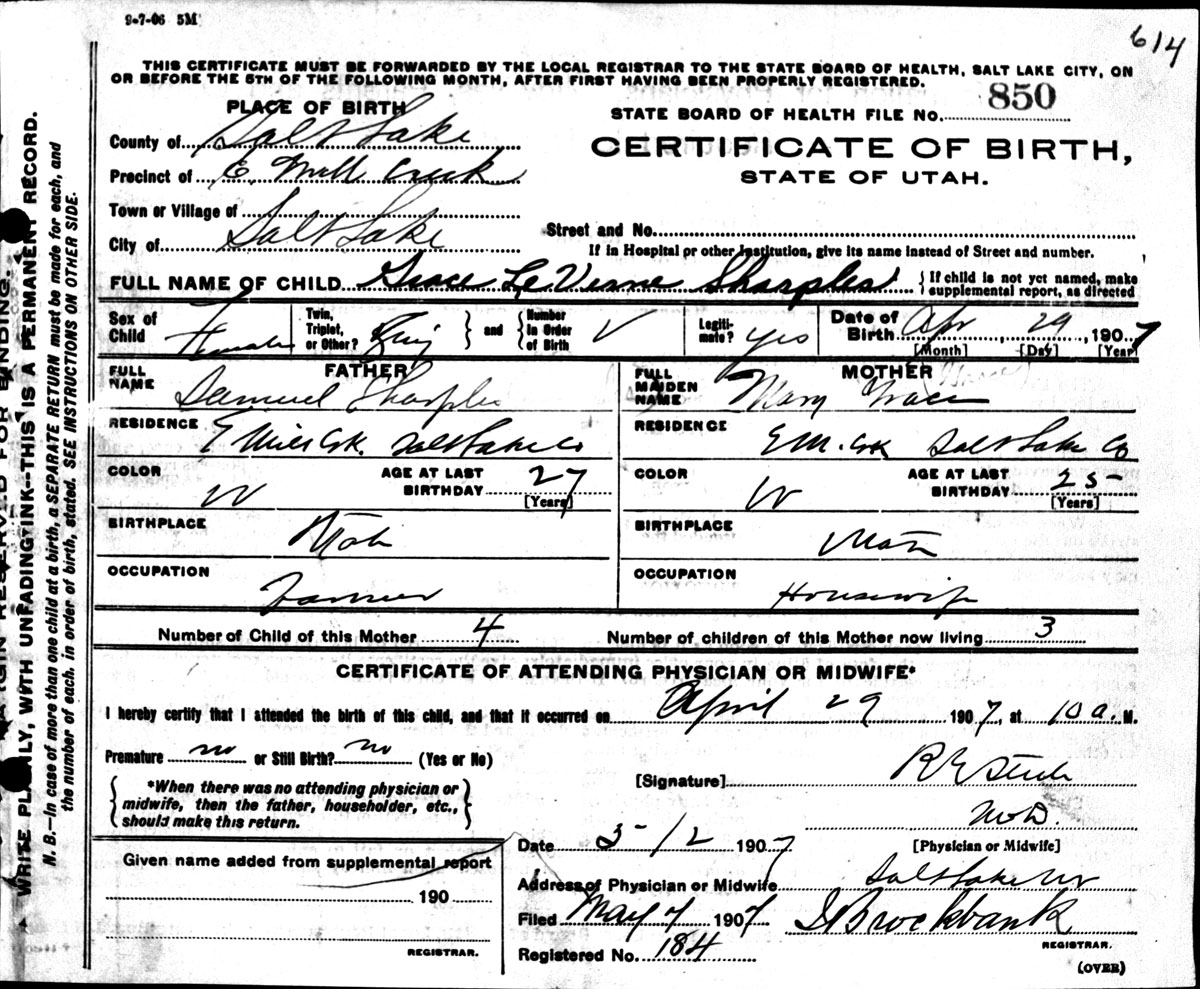 9-7-06 5M
614
THIS CERTIFICATE MUST BE FORWARDED BY THE LOCAL REGISTRAR TO THE STATE BOARD OF HEALTH, SALT LAKE CITY, ON
OR BEFORE THE 5TH OF THE FOLLOWING MONTH, AFTER FIRST HAVING BEEN PROPERLY REGISTERED.
PLACE OF BIRTH
STATE BOARD OF HEALTH FILE No. 850
County of Salt Lake
CERTIFICATE OF BIRTH,
Precinct of E. Mill Creek
STATE OF UTAH.
Town or Village of
City of Salt Lake
Street and No.
If in Hospital or other Institution, give its name instead of Street and number.
FULL NAME OF CHILD Grace Le Verne Sharples { If child is not yet named, make supplemental report, as directed
Sex of Child Female
Twin, Triplet, or Other? } and { Number in Order of Birth
Legitimate? yes
Date of Birth Apr 29, 1907
[Month] [Day] [Year]
FATHER
FULL NAME Samuel Sharples
RESIDENCE E Mill Crk. Salt Lake Co
COLOR W
AGE AT LAST BIRTHDAY 27
[Years]
BIRTHPLACE Utah
OCCUPATION Farmer
MOTHER
FULL MAIDEN NAME Mary Grace
RESIDENCE E M. Crk Salt Lake Co
COLOR W
AGE AT LAST BIRTHDAY 25
[Years]
BIRTHPLACE Utah
OCCUPATION Housewife
Number of Child of this Mother 4
Number of children of this Mother now living 3
CERTIFICATE OF ATTENDING PHYSICIAN OR MIDWIFE*
I hereby certify that I attended the birth of this child, and that it occurred on April 29 1907, at 10 a. M.
Premature no or Still Birth? no (Yes or No)
{ *When there was no attending physician or
midwife, then the father, householder, etc.,
should make this return. }
[Signature] R E Steele
M.D.
[Physician or Midwife]
Date 5-/2 1907
Address of Physician or Midwife Salt Lake
Filed May 7 1907
Brockbank
REGISTRAR.
Registered No. 184
(OVER)
Given name added from supplemental report
190
REGISTRAR.
WRITE PLAINLY, WITH UNFADING INK--THIS IS A PERMANENT RECORD.
N. B.—In case of more than one child at a birth, a SEPARATE RETURN must be made for each, and
the number of each. in order of birth, stated. SEE INSTRUCTIONS ON OTHER SIDE.